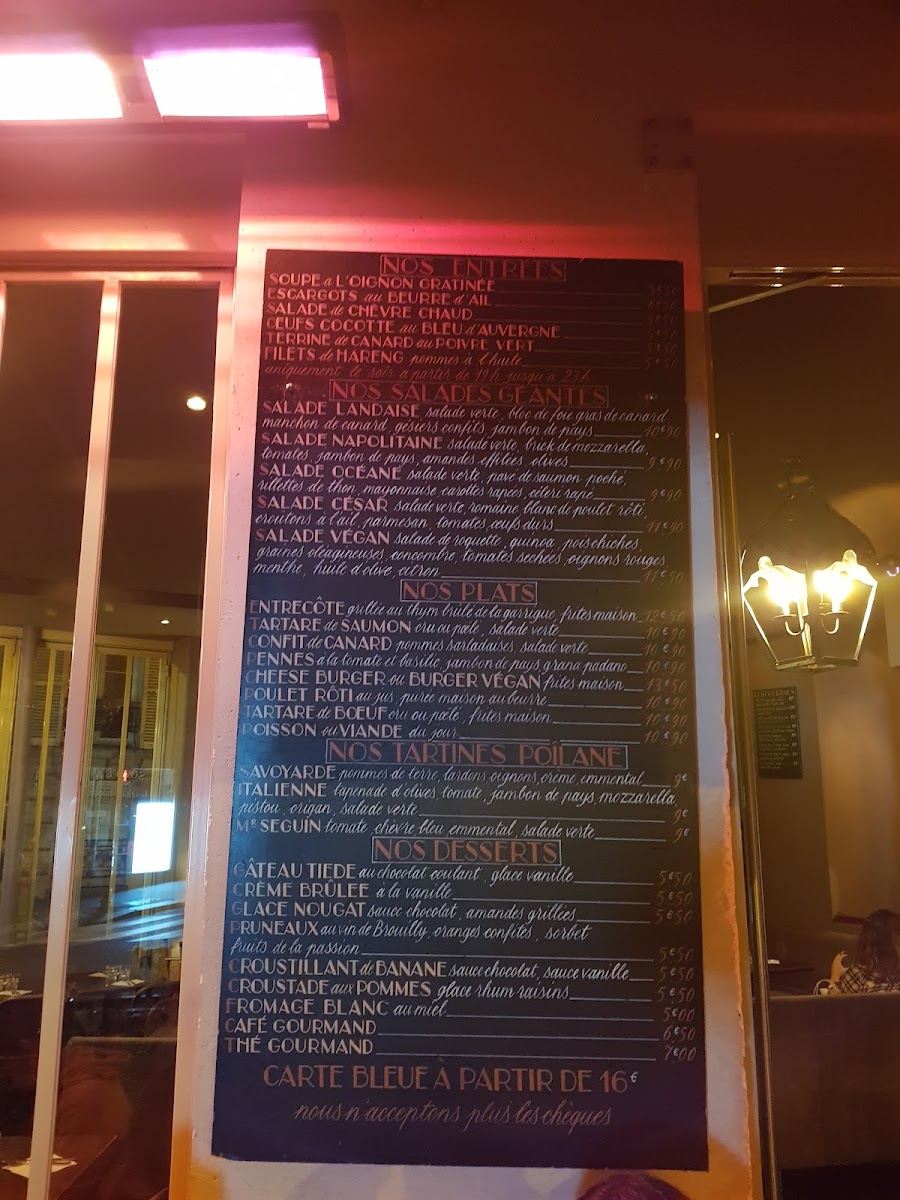 NOS ENTRÉES
SOUPE à L'OIGNON GRATINÉE
ESCARGOTS au BEURRE d'AIL
SALADE de CHÈVRE CHAUD
ŒUFS COCOTTE au BLEU d'AUVERGNE
TERRINE de CANARD au POIVRE VERT
FILETS de HARENG pommes à l'huile
uniquement le soir à partir de 19h jusqu'à 23h
NOS SALADES GÉANTES
SALADE LANDAISE salade verte, bloc de foie gras de canard
manchon de canard, gésiers confits, jambon de pays 10€90
SALADE NAPOLITAINE salade verte, brick de mozzarella,
tomates, jambon de pays, amandes effilées, olives 9€90
SALADE OCÉANE salade verte, pavé de saumon poché,
rillettes de thon, mayonnaise, carottes rapées, céleri rapé 9€90
SALADE CÉSAR salade verte, romaine, blanc de poulet rôti,
croutons à l'ail, parmesan, tomates, œufs durs 11€90
SALADE VÉGAN salade de roquette, quinoa, pois chiches,
graines oléagineuses, concombre, tomates sechées, oignons rouges
menthe, huile d'olive, citron 11€50
NOS PLATS
ENTRECÔTE grillée au thym brûlé de la garrigue, frites maison 12€50
TARTARE de SAUMON cru ou poêlé, salade verte 10€90
CONFIT de CANARD pommes sarladaises, salade verte 10€90
PENNES à la tomate et basilic, jambon de pays, grana padano 10€90
CHEESE BURGER ou BURGER VÉGAN frites maison 13€50
POULET RÔTI au jus, purée maison au beurre 10€90
TARTARE de BŒUF cru ou poêlé, frites maison 10€90
POISSON ou VIANDE du jour 10€90
NOS TARTINES POÎLANE
SAVOYARDE pommes de terre, lardons, oignons, crème, emmental 9€
ITALIENNE tapenade d'olives, tomate, jambon de pays, mozzarella,
pistou, origan, salade verte 9€
Mr SEGUIN tomate, chèvre, bleu, emmental, salade verte 9€
NOS DESSERTS
GÂTEAU TIEDE au chocolat coulant, glace vanille 5€50
CRÈME BRÛLEE à la vanille 5€50
GLACE NOUGAT sauce chocolat, amandes grillées 5€50
PRUNEAUX au vin de Brouilly, oranges confites, sorbet
fruits de la passion 5€50
CROUSTILLANT de BANANE sauce chocolat, sauce vanille 5€50
CROUSTADE aux POMMES glace rhum raisins 5€50
FROMAGE BLANC au miel 5€00
CAFÉ GOURMAND 6€50
THÉ GOURMAND 7€00
CARTE BLEUE À PARTIR DE 16€
nous n'acceptons plus les chèques